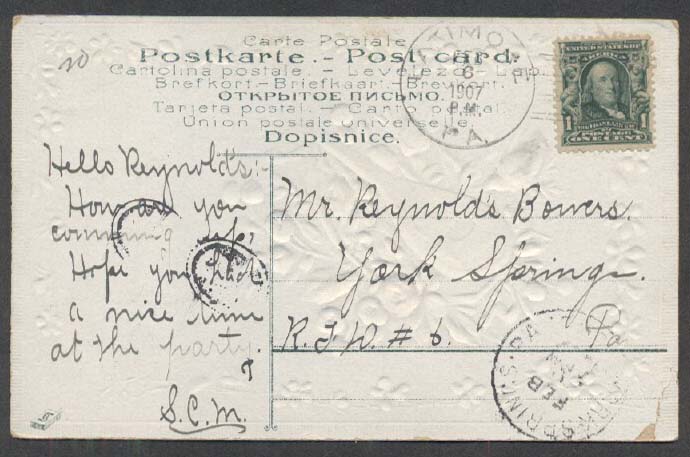 20
Carte Postale
Postkarte.-Post card.
Cartolina postale.-Levelező-Lap.
Brefkort.-Briefkaart.-Brevkort.
ОТКРЫТОЕ ПИСЬМО.
Tarjeta postal.-Carto postal.
Union postale universelle.
Dopisnice.
FEB
6
1907
P.M.
PA.
UNITED STATES OF
AMERICA
1 1
POSTAGE
ONE CENT
Hello Reynolds:-
How are you
comming up,
Hope you had
a nice time
at the party.
S.C.M.
Mr. Reynolds Bowers.
York Springs.
R.F.D. # 6. Pa
YORK SPRINGS. PA.
FEB
7